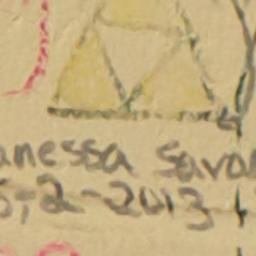 anessa Sava
5-2-2013